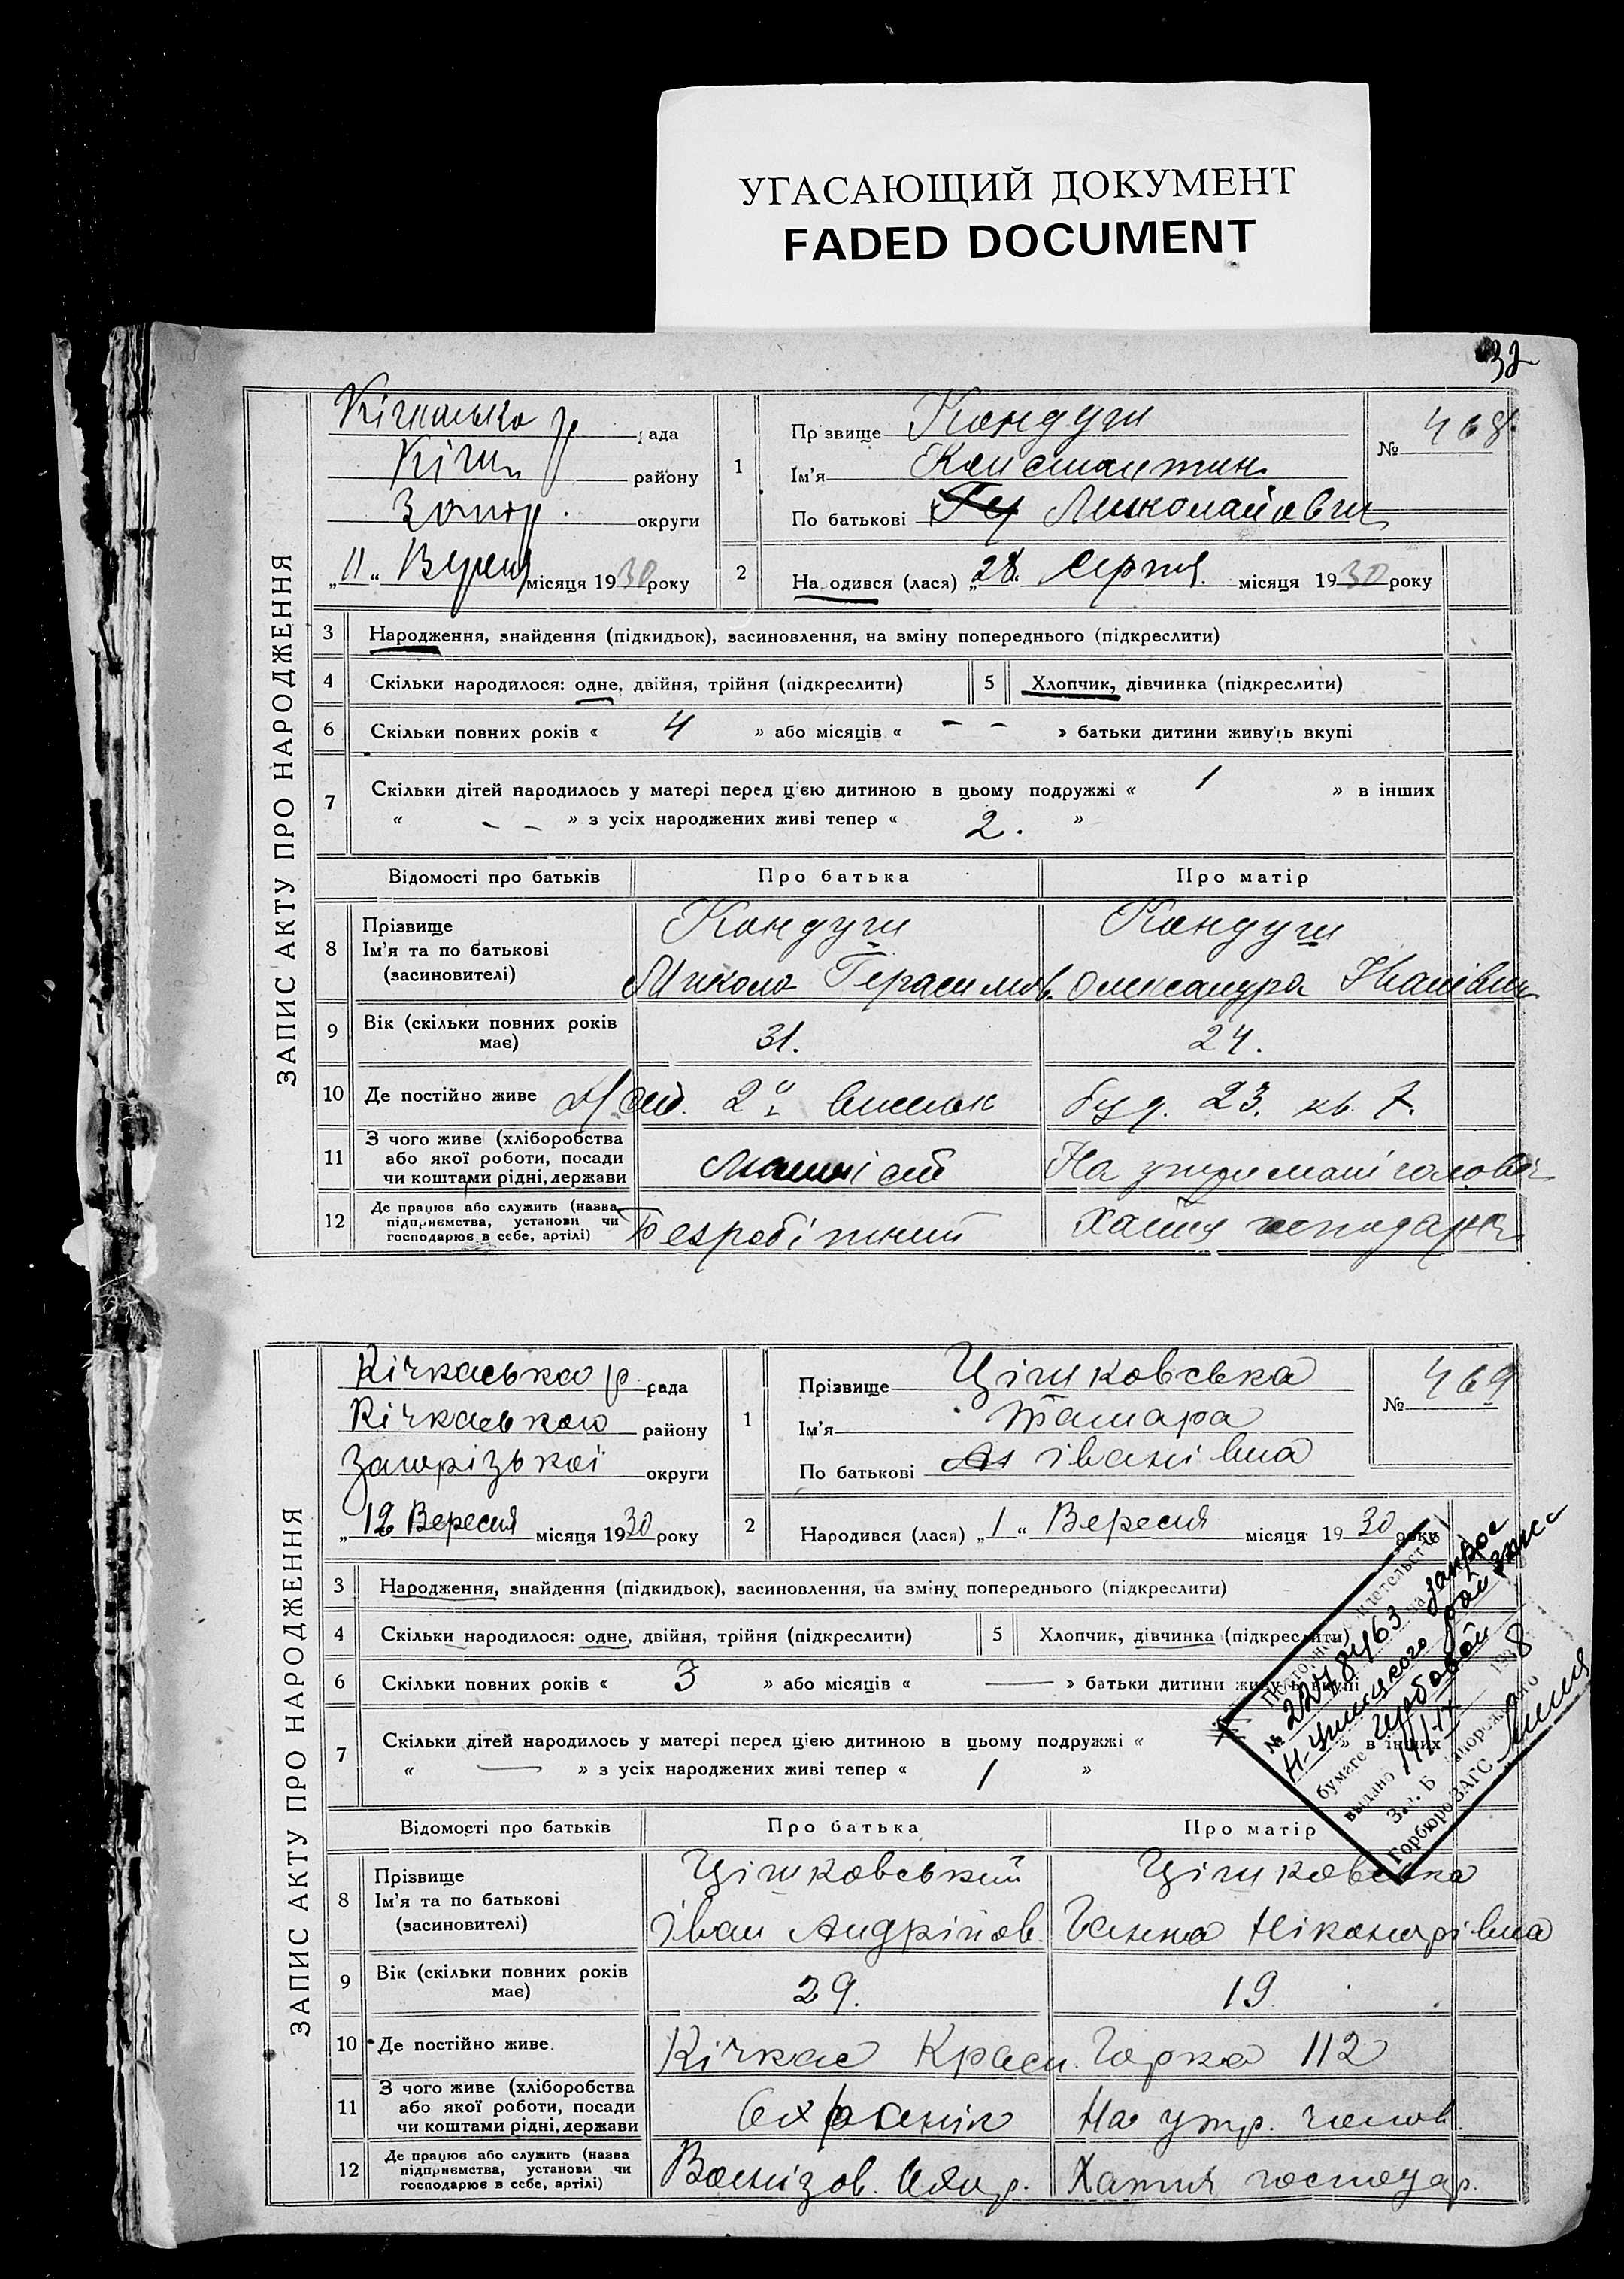 УГАСАЮЩИЙ ДОКУМЕНТ
FADED DOCUMENT
32
ЗАПИС АКТУ ПРО НАРОДЖЕННЯ
Кічкаська р рада
Кічк. району
Запор. округи
„11“ Вересня місяця 1930 року
1
Прізвище Кондуги
Ім'я Констянтин
По батькові Гер Миколайович
№ 468
2
Народився (лася) „28“ Серпня місяця 1930 року
3 Народження, знайдення (підкидьок), засиновлення, на зміну попереднього (підкреслити)
4 Скільки народилося: одне, двійня, трійня (підкреслити) 5 Хлопчик, дівчинка (підкреслити)
6 Скільки повних років « 4 » або місяців « – – » батьки дитини живуть вкупі
7 Скільки дітей народилось у матері перед цією дитиною в цьому подружжі « 1 » в інших
« – – » з усіх народжених живі тепер « 2. »
Відомості про батьків Про батька Про матір
8 Прізвище
Ім'я та по батькові
(засиновителі)
Кондуги Кондуги
Микола Герасимов. Олександра Іванівна
9 Вік (скільки повних років має) 31. 24.
10 Де постійно живе 2й виселок буд. 23. кв. 7.
11 З чого живе (хліборобства
або якої роботи, посади
чи коштами рідні, держави
Машиніст На утриманні чоловік
12 Де працює або служить (назва
підприємства, установи чи
господарює в себе, артілі)
Безробітний Хатня господарка
ЗАПИС АКТУ ПРО НАРОДЖЕННЯ
Кічкаська р. рада
Кічкаського району
Запорізької округи
„12 Вересня місяця 1930 року
1
Прізвище Цішковська
Ім'я Тамара
По батькові Іванівна
№ 469
2
Народився (лася) „1“ Вересня місяця 1930 року
3 Народження, знайдення (підкидьок), засиновлення, на зміну попереднього (підкреслити)
4 Скільки народилося: одне, двійня, трійня (підкреслити) 5 Хлопчик, дівчинка (підкреслити)
6 Скільки повних років « 3 » або місяців « — » батьки дитини живуть вкупі
7 Скільки дітей народилось у матері перед цією дитиною в цьому подружжі « » в інших
« — » з усіх народжених живі тепер « 1 »
на запрос
№ 2278463
райзагс
бумаге
выдано
Запорожского
Горбюро ЗАГС
Відомості про батьків Про батька Про матір
8 Прізвище
Ім'я та по батькові
(засиновителі)
Цішковський Цішковська
Іван Андрійов. Ганна Ніконорівна
9 Вік (скільки повних років має) 29. 19.
10 Де постійно живе. Кічкас Красн. Горка 112
11 З чого живе (хліборобства
або якої роботи, посади
чи коштами рідні, держави
Охраник На утр. чолов.
12 Де працює або служить (назва
підприємства, установи чи
господарює в себе, артілі)
Воєнізов. Охор. Хатня господар.